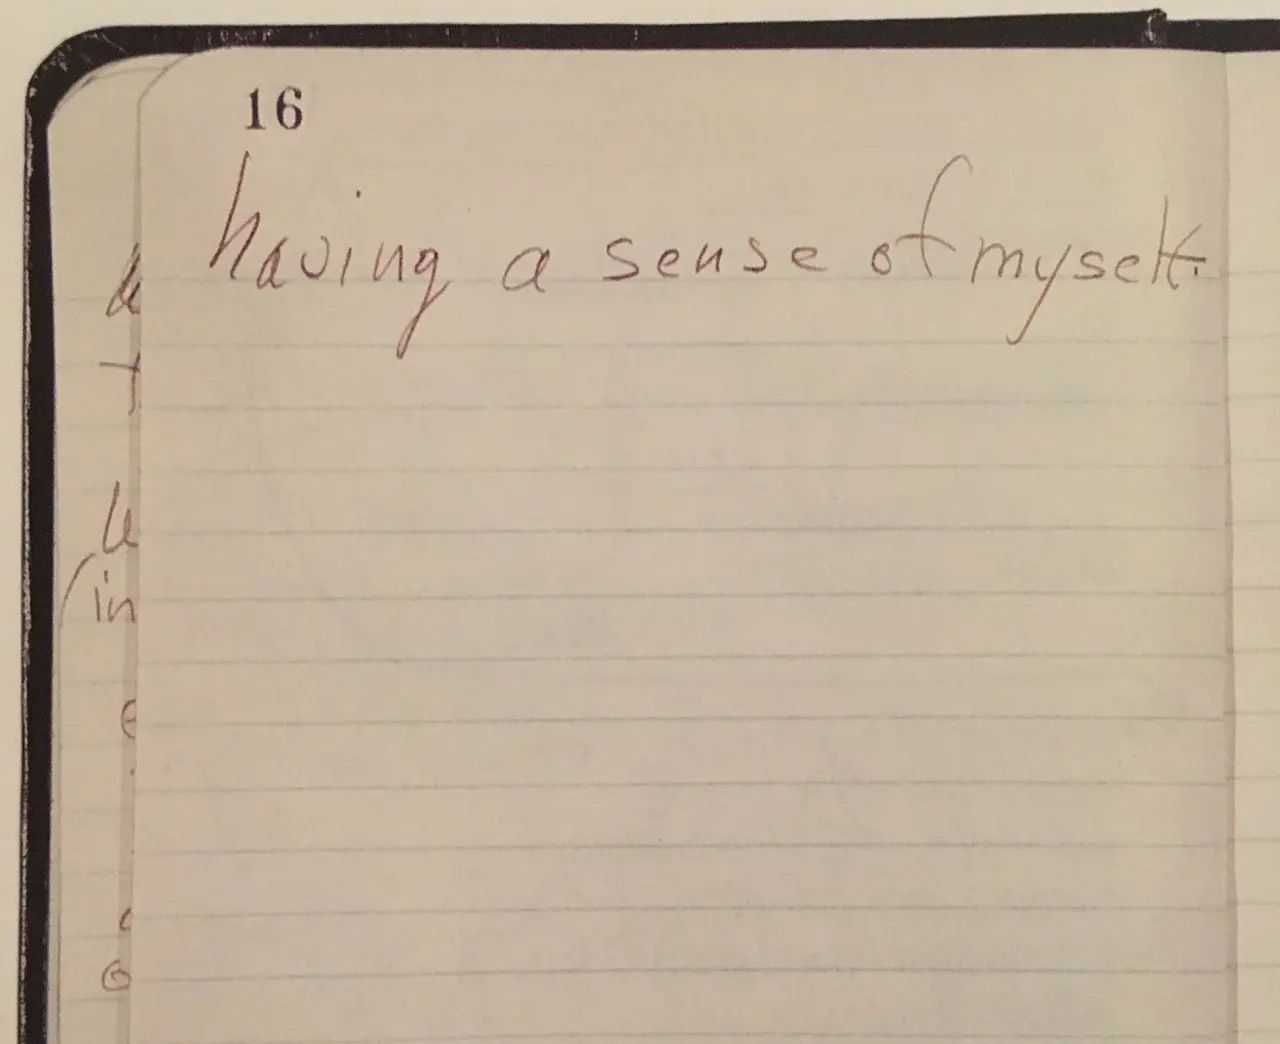 16
having a sense of myself.
in